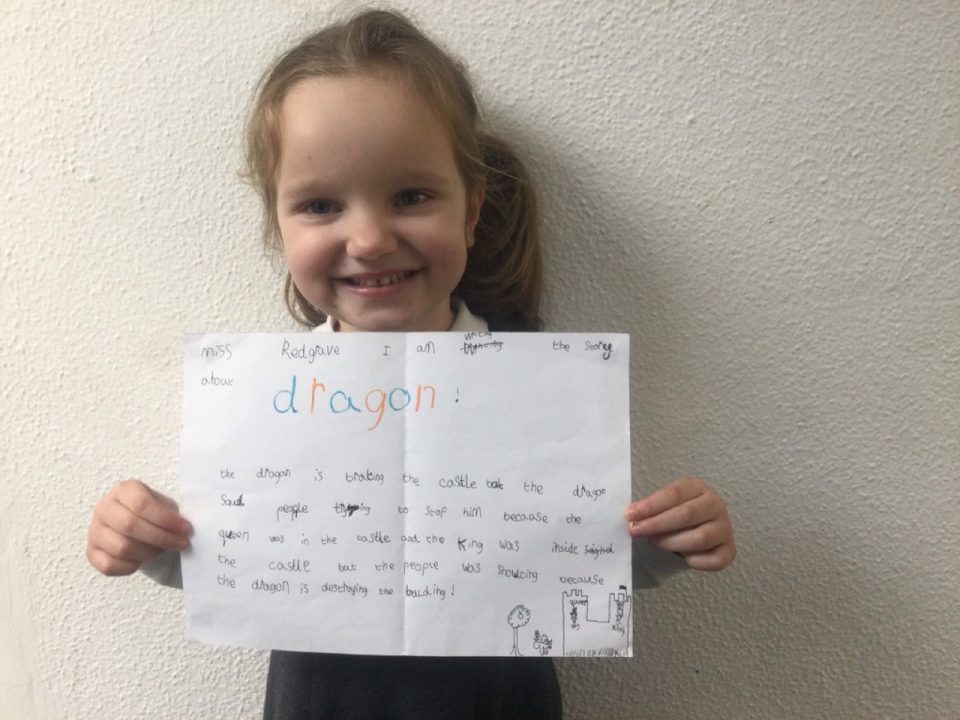 writing
miss Redgrave I am the story
about
dragon!
the dragon is braking the castle but the dragon
people trying to stop him because the
queen was in the castle and the King was inside
the castle but the people was showting because
the dragon is destroying the building!